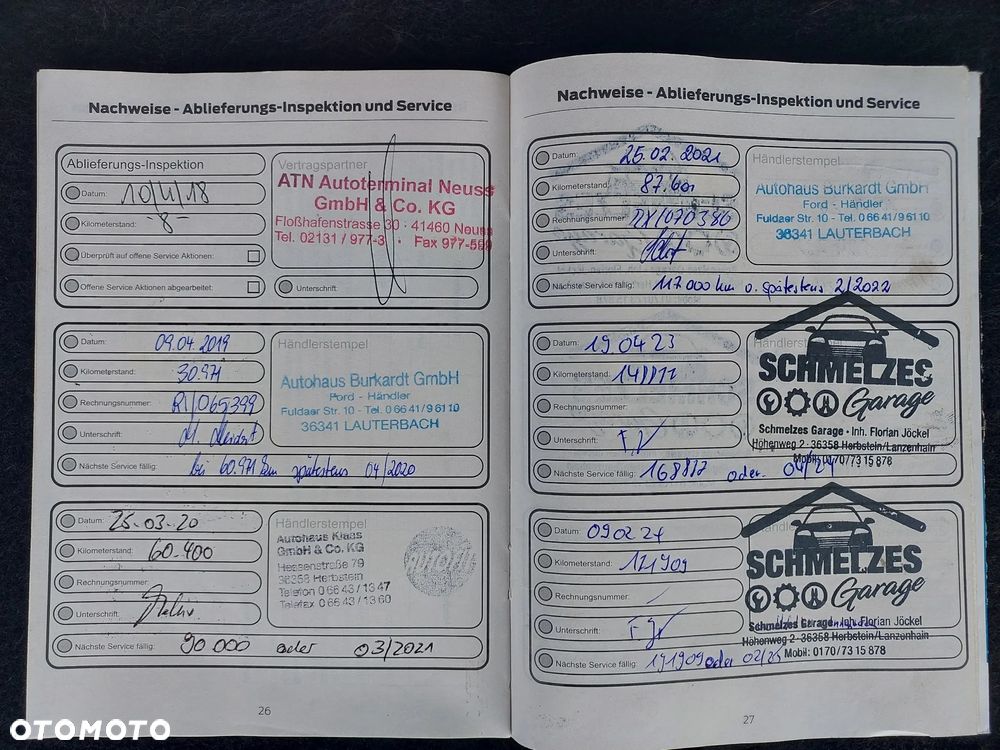 Nachweise - Ablieferungs-Inspektion und Service
Ablieferungs-Inspektion
Datum: 10/4/18
Kilometerstand: -8-
Überprüft auf offene Service Aktionen:
Offene Service Aktionen abgearbeitet:
Vertragspartner
ATN Autoterminal Neuss
GmbH & Co. KG
Floßhafenstrasse 30 · 41460 Neuss
Tel. 02131 / 977-3 · Fax 977-599
Unterschrift:
Datum: 09.04.2019
Kilometerstand: 30.971
Rechnungsnummer: R1/065399
Unterschrift:
Nächste Service fällig: bei 60.971 km spätestens 04/2020
Händlerstempel
Autohaus Burkardt GmbH
Ford - Händler
Fuldaer Str. 10 - Tel. 0 66 41 / 9 61 10
36341 LAUTERBACH
Datum: 25-03-20
Kilometerstand: 60-400
Rechnungsnummer:
Unterschrift:
Nächste Service fällig: 90 000 oder 03/2021
Händlerstempel
Autohaus Klaas
GmbH & Co. KG
Hessenstraße 79
36358 Herbstein
Telefon 0 66 43 / 13 47
Telefax 0 66 43 / 13 60
26
Nachweise - Ablieferungs-Inspektion und Service
Datum: 25.02.2021
Kilometerstand: 87.601
Rechnungsnummer:
Unterschrift:
Nächste Service fällig: 117 000 km o. spätestens 2/2022
Händlerstempel
Autohaus Burkardt GmbH
Ford - Händler
Fuldaer Str. 10 - Tel. 0 66 41 / 9 61 10
36341 LAUTERBACH
Datum: 19 04 23
Kilometerstand: 148877
Rechnungsnummer:
Unterschrift:
Nächste Service fällig: 168877 oder 04/24
SCHMELZES
Garage
Schmelzes Garage • Inh. Florian Jöckel
Höhenweg 2 - 36358 Herbstein/Lanzenhain
Mobil: 0170/73 15 878
Datum: 09 02 24
Kilometerstand: 171909
Rechnungsnummer:
Unterschrift:
Nächste Service fällig: 191909 oder 02/25
SCHMELZES
Garage
Schmelzes Garage • Inh. Florian Jöckel
Höhenweg 2 - 36358 Herbstein/Lanzenhain
Mobil: 0170/73 15 878
27
OTOMOTO